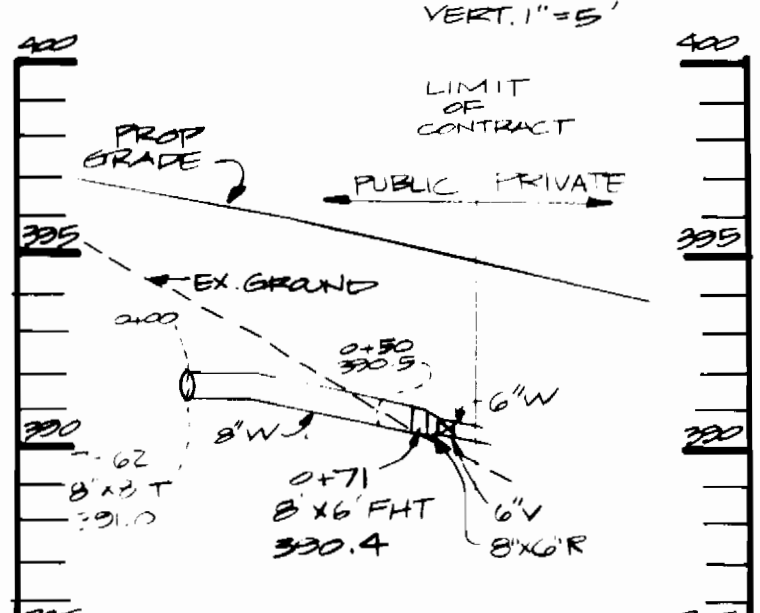 VERT. 1" = 5'
400
400
LIMIT
OF
CONTRACT
PROP
GRADE
PUBLIC PRIVATE
395
395
EX. GROUND
0+00
0+50
390.5
6"W
8"W
390
390
62
8"x8"T
391.0
0+71
8"X6"FHT
390.4
6"V
8"x6"R